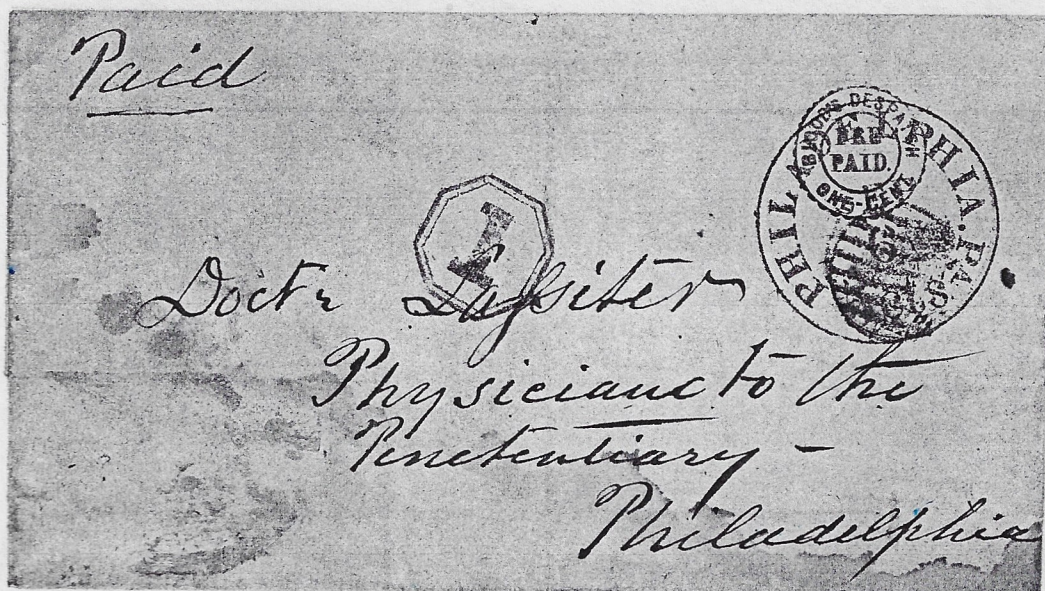 Paid
BLOOD'S DESPATCH
PRE
PAID
ONE-CENT
PHILADELPHIA. Pa
1
Doctr Lassiter
Physiciane to the
Penetentiary -
Philadelphia